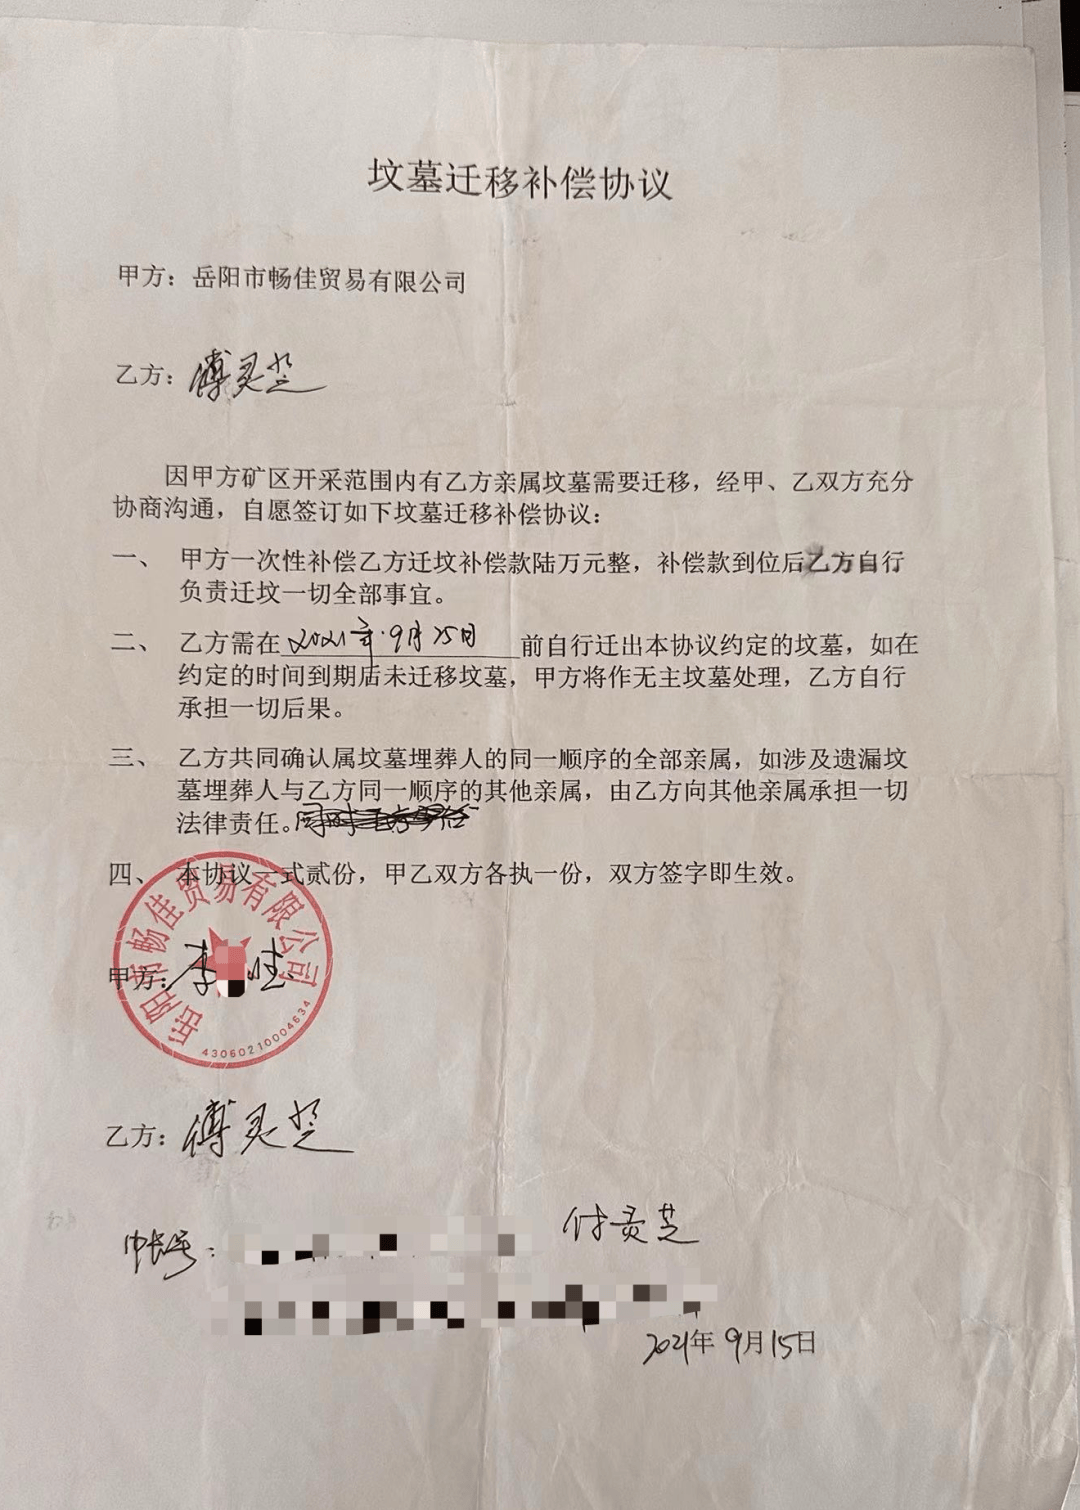 坟墓迁移补偿协议
甲方：岳阳市畅佳贸易有限公司
乙方：傅灵芝
因甲方矿区开采范围内有乙方亲属坟墓需要迁移，经甲、乙双方充分
协商沟通，自愿签订如下坟墓迁移补偿协议：
一、 甲方一次性补偿乙方迁坟补偿款陆万元整，补偿款到位后乙方自行
负责迁坟一切全部事宜。
二、 乙方需在2021年.9月25日前自行迁出本协议约定的坟墓，如在
约定的时间到期后未迁移坟墓，甲方将作无主坟墓处理，乙方自行
承担一切后果。
三、 乙方共同确认属坟墓埋葬人的同一顺序的全部亲属，如涉及遗漏坟
墓埋葬人与乙方同一顺序的其他亲属，由乙方向其他亲属承担一切
法律责任。
四、 本协议一式贰份，甲乙双方各执一份，双方签字即生效。
岳阳市畅佳贸易有限公司
甲方：李
43060210004634
乙方：傅灵芝
帐号：
付灵芝
2021年9月15日